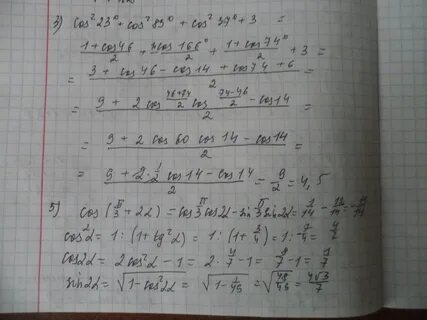 3) cos²23° + cos²83° + cos²37° + 3 =
(1+cos46)/2 + (1+cos166°)/2 + (1+cos74°)/2 + 3 =
= (3 + cos46 - cos14 + cos74 + 6)/2 =
= (9 + 2cos (46+74)/2 cos (74-46)/2 - cos14)/2 =
= (9 + 2 cos 60 cos 14 - cos14)/2 =
= (9 + 2·1/2 cos14 - cos14)/2 = 9/2 = 4,5
5) cos(π/3 + 2α) = cos π/3 cos2α - sin π/3 sin2α =
cos²α = 1 : (1 + tg²α) = 1 : (1 + 3/4) = 1 : 7/4 = 4/7
cos2α = 2cos²α - 1 = 2 · 4/7 - 1 = 8/7 - 1 = 1/7
sin2α = √(1 - cos²2α) = √(1 - 1/49) = √(48/49) = 4√3/7